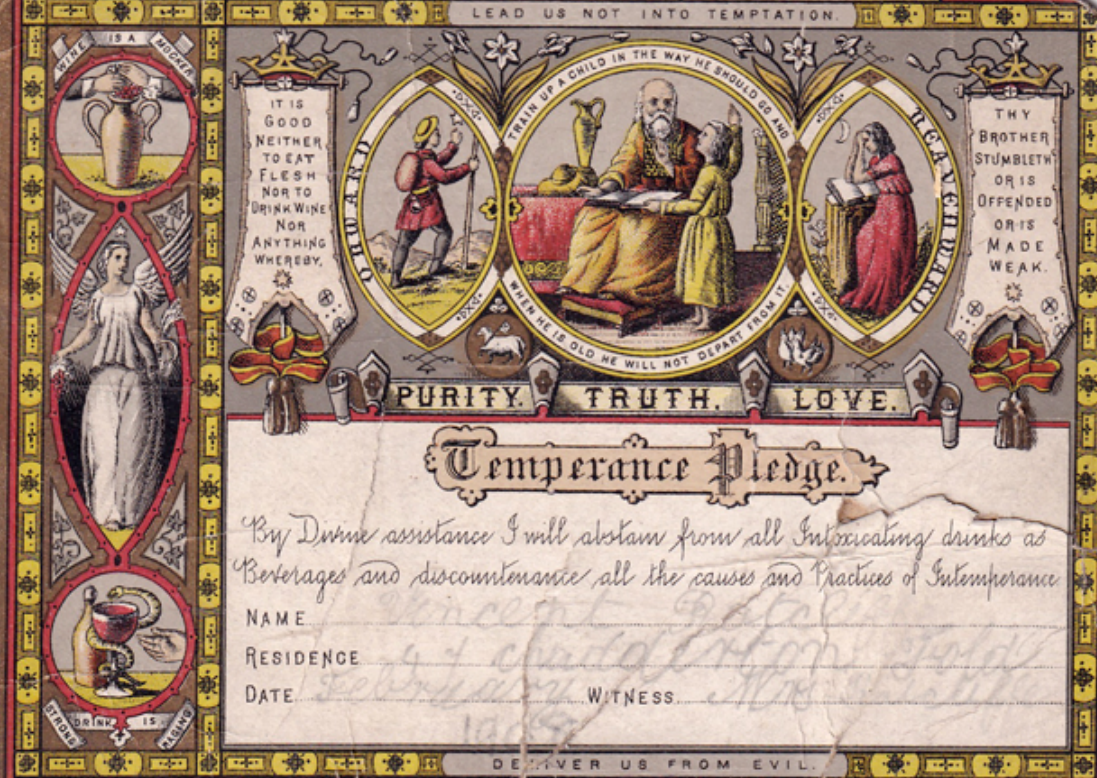 LEAD US NOT INTO TEMPTATION.
WINE IS A MOCKER
IT IS
GOOD
NEITHER
TO EAT
FLESH
NOR TO
DRINK WINE
NOR
ANYTHING
WHEREBY,
ONWARD
TRAIN UP A CHILD IN THE WAY HE SHOULD GO AND
WHEN HE IS OLD HE WILL NOT DEPART FROM IT.
HEAVENWARD
THY
BROTHER
STUMBLETH
OR IS
OFFENDED
OR IS
MADE
WEAK.
PURITY. TRUTH. LOVE.
Temperance Pledge.
By Divine assistance I will abstain from all Intoxicating drinks as
Beverages and discountenance all the causes and Practices of Intemperance
NAME Vincent
RESIDENCE
DATE February WITNESS
STRONG DRINK IS RAGING
DELIVER US FROM EVIL.